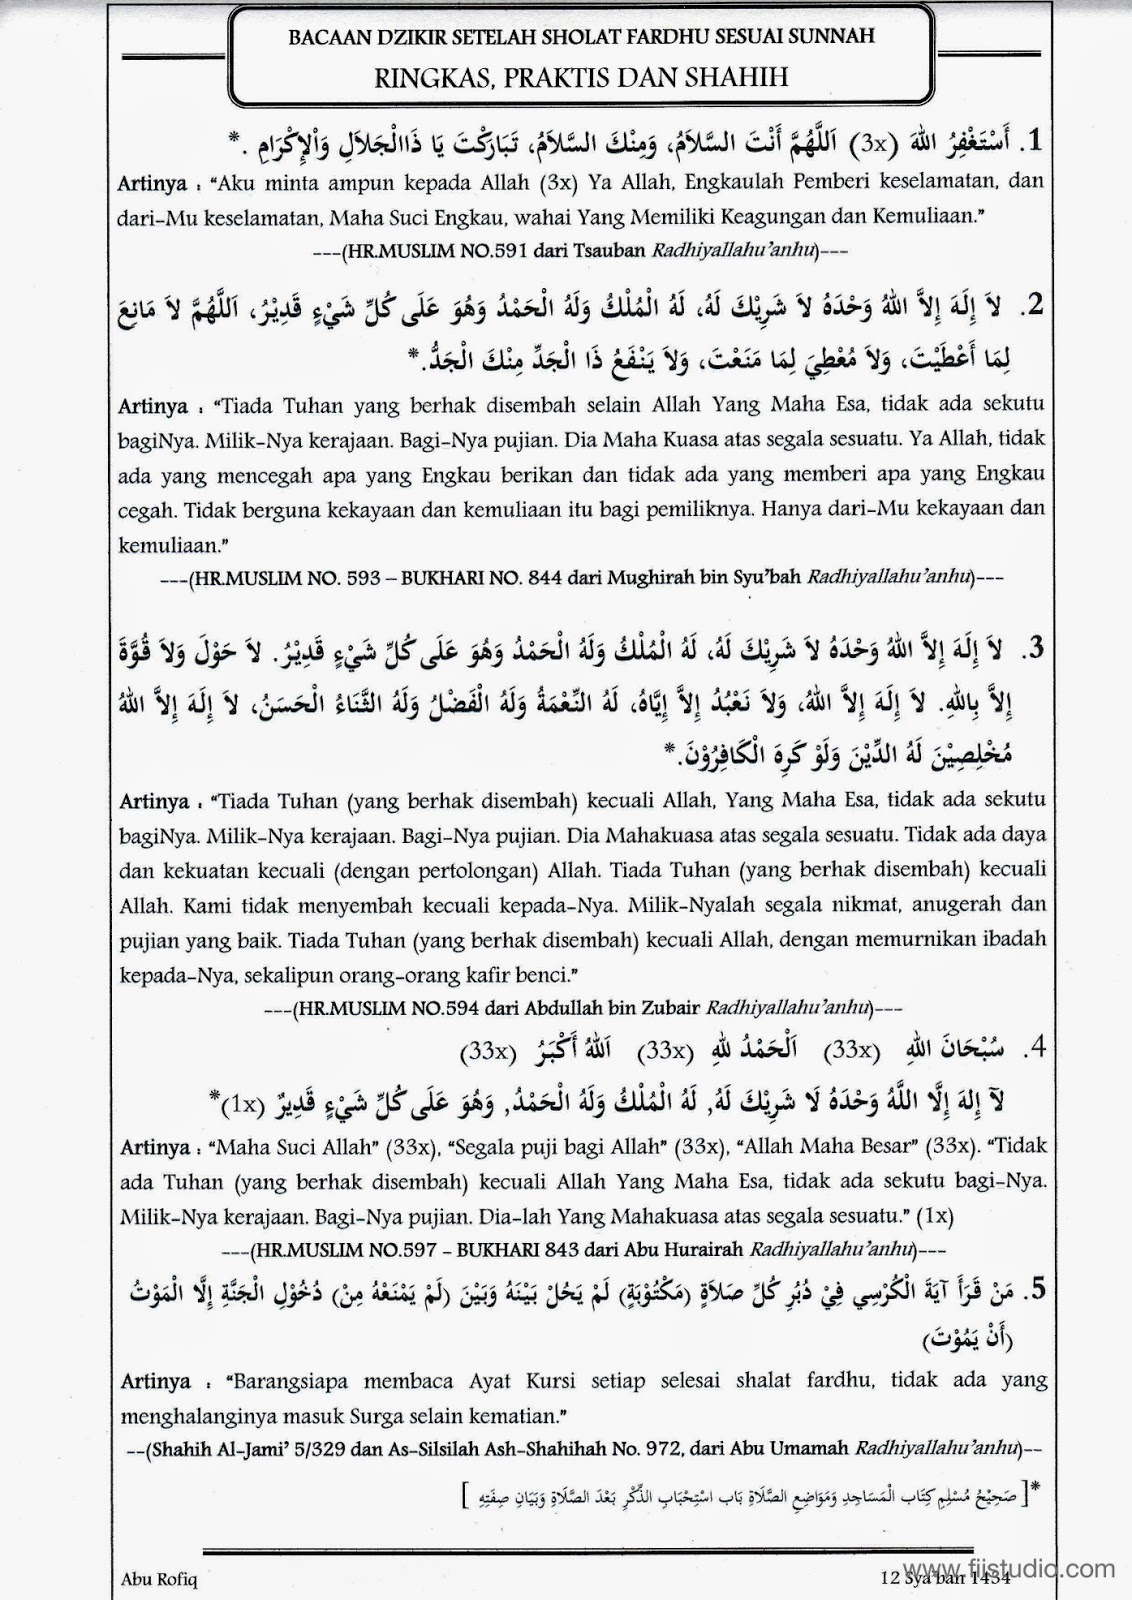 BACAAN DZIKIR SETELAH SHOLAT FARDHU SESUAI SUNNAH
RINGKAS, PRAKTIS DAN SHAHIH
1. أَسْتَغْفِرُ اللهَ (3x) اَللَّهُمَّ أَنْتَ السَّلاَمُ، وَمِنْكَ السَّلاَمُ، تَبَارَكْتَ يَا ذَاالْجَلاَلِ وَاْلإِكْرَامِ .*
Artinya : “Aku minta ampun kepada Allah (3x) Ya Allah, Engkaulah Pemberi keselamatan, dan
dari-Mu keselamatan, Maha Suci Engkau, wahai Yang Memiliki Keagungan dan Kemuliaan.”
---(HR.MUSLIM NO.591 dari Tsauban Radhiyallahu’anhu)---
2. لاَ إِلَهَ إِلاَّ اللهُ وَحْدَهُ لاَ شَرِيْكَ لَهُ، لَهُ الْمُلْكُ وَلَهُ الْحَمْدُ وَهُوَ عَلَى كُلِّ شَيْءٍ قَدِيْرُ، اَللَّهُمَّ لاَ مَانِعَ
لِمَا أَعْطَيْتَ، وَلاَ مُعْطِيَ لِمَا مَنَعْتَ، وَلاَ يَنْفَعُ ذَا الْجَدِّ مِنْكَ الْجَدُّ.*
Artinya : “Tiada Tuhan yang berhak disembah selain Allah Yang Maha Esa, tidak ada sekutu
bagiNya. Milik-Nya kerajaan. Bagi-Nya pujian. Dia Maha Kuasa atas segala sesuatu. Ya Allah, tidak
ada yang mencegah apa yang Engkau berikan dan tidak ada yang memberi apa yang Engkau
cegah. Tidak berguna kekayaan dan kemuliaan itu bagi pemiliknya. Hanya dari-Mu kekayaan dan
kemuliaan.”
---(HR.MUSLIM NO. 593 – BUKHARI NO. 844 dari Mughirah bin Syu’bah Radhiyallahu’anhu)---
3. لاَ إِلَهَ إِلاَّ اللهُ وَحْدَهُ لاَ شَرِيْكَ لَهُ، لَهُ الْمُلْكُ وَلَهُ الْحَمْدُ وَهُوَ عَلَى كُلِّ شَيْءٍ قَدِيْرُ. لاَ حَوْلَ وَلاَ قُوَّةَ
إِلاَّ بِاللهِ. لاَ إِلَهَ إِلاَّ اللهُ، وَلاَ نَعْبُدُ إِلاَّ إِيَّاهُ، لَهُ النِّعْمَةُ وَلَهُ الْفَضْلُ وَلَهُ الثَّنَاءُ الْحَسَنُ، لاَ إِلَهَ إِلاَّ اللهُ
مُخْلِصِيْنَ لَهُ الدِّيْنَ وَلَوْ كَرِهَ الْكَافِرُوْنَ.*
Artinya : “Tiada Tuhan (yang berhak disembah) kecuali Allah, Yang Maha Esa, tidak ada sekutu
bagiNya. Milik-Nya kerajaan. Bagi-Nya pujian. Dia Mahakuasa atas segala sesuatu. Tidak ada daya
dan kekuatan kecuali (dengan pertolongan) Allah. Tiada Tuhan (yang berhak disembah) kecuali
Allah. Kami tidak menyembah kecuali kepada-Nya. Milik-Nyalah segala nikmat, anugerah dan
pujian yang baik. Tiada Tuhan (yang berhak disembah) kecuali Allah, dengan memurnikan ibadah
kepada-Nya, sekalipun orang-orang kafir benci.”
---(HR.MUSLIM NO.594 dari Abdullah bin Zubair Radhiyallahu’anhu)---
4. سُبْحَانَ اللهِ (33x) اَلْحَمْدُ لِلهِ (33x) اَللهُ أَكْبَرُ (33x)
لآ إِلهَ إِلَّا اللَّهُ وَحْدَهُ لَا شَرِيْكَ لَهُ, لَهُ الْمُلْكُ وَلَهُ الْحَمْدُ, وَهُوَ عَلَى كُلِّ شَيْءٍ قَدِيرٌ (1x)*
Artinya : “Maha Suci Allah” (33x), “Segala puji bagi Allah” (33x), “Allah Maha Besar” (33x). “Tidak
ada Tuhan (yang berhak disembah) kecuali Allah Yang Maha Esa, tidak ada sekutu bagi-Nya.
Milik-Nya kerajaan. Bagi-Nya pujian. Dia-lah Yang Mahakuasa atas segala sesuatu.” (1x)
---(HR.MUSLIM NO.597 – BUKHARI 843 dari Abu Hurairah Radhiyallahu’anhu)---
5. مَنْ قَرَأَ آيَةَ الْكُرْسِي فِيْ دُبُرِ كُلِّ صَلاَةٍ (مَكْتُوْبَةٍ) لَمْ يَحُلْ بَيْنَهُ وَبَيْنَ (لَمْ يَمْنَعْهُ مِنْ) دُخُوْلِ الْجَنَّةِ إِلَّا الْمَوْتُ
(أَنْ يَمُوْتَ)
Artinya : “Barangsiapa membaca Ayat Kursi setiap selesai shalat fardhu, tidak ada yang
menghalanginya masuk Surga selain kematian.”
--(Shahih Al-Jami’ 5/329 dan As-Silsilah Ash-Shahihah No. 972, dari Abu Umamah Radhiyallahu’anhu)--
*[ صَحِيْحُ مُسْلِمِ كِتَاب الْمَسَاجِدِ وَمَوَاضِعِ الصَّلَاةِ بَاب اسْتِحْبَابِ الذِّكْرِ بَعْدَ الصَّلَاةِ وَبَيَانِ صِفَتِهِ ]
Abu Rofiq
12 Sya’ban 1434
www.fiistudio.com